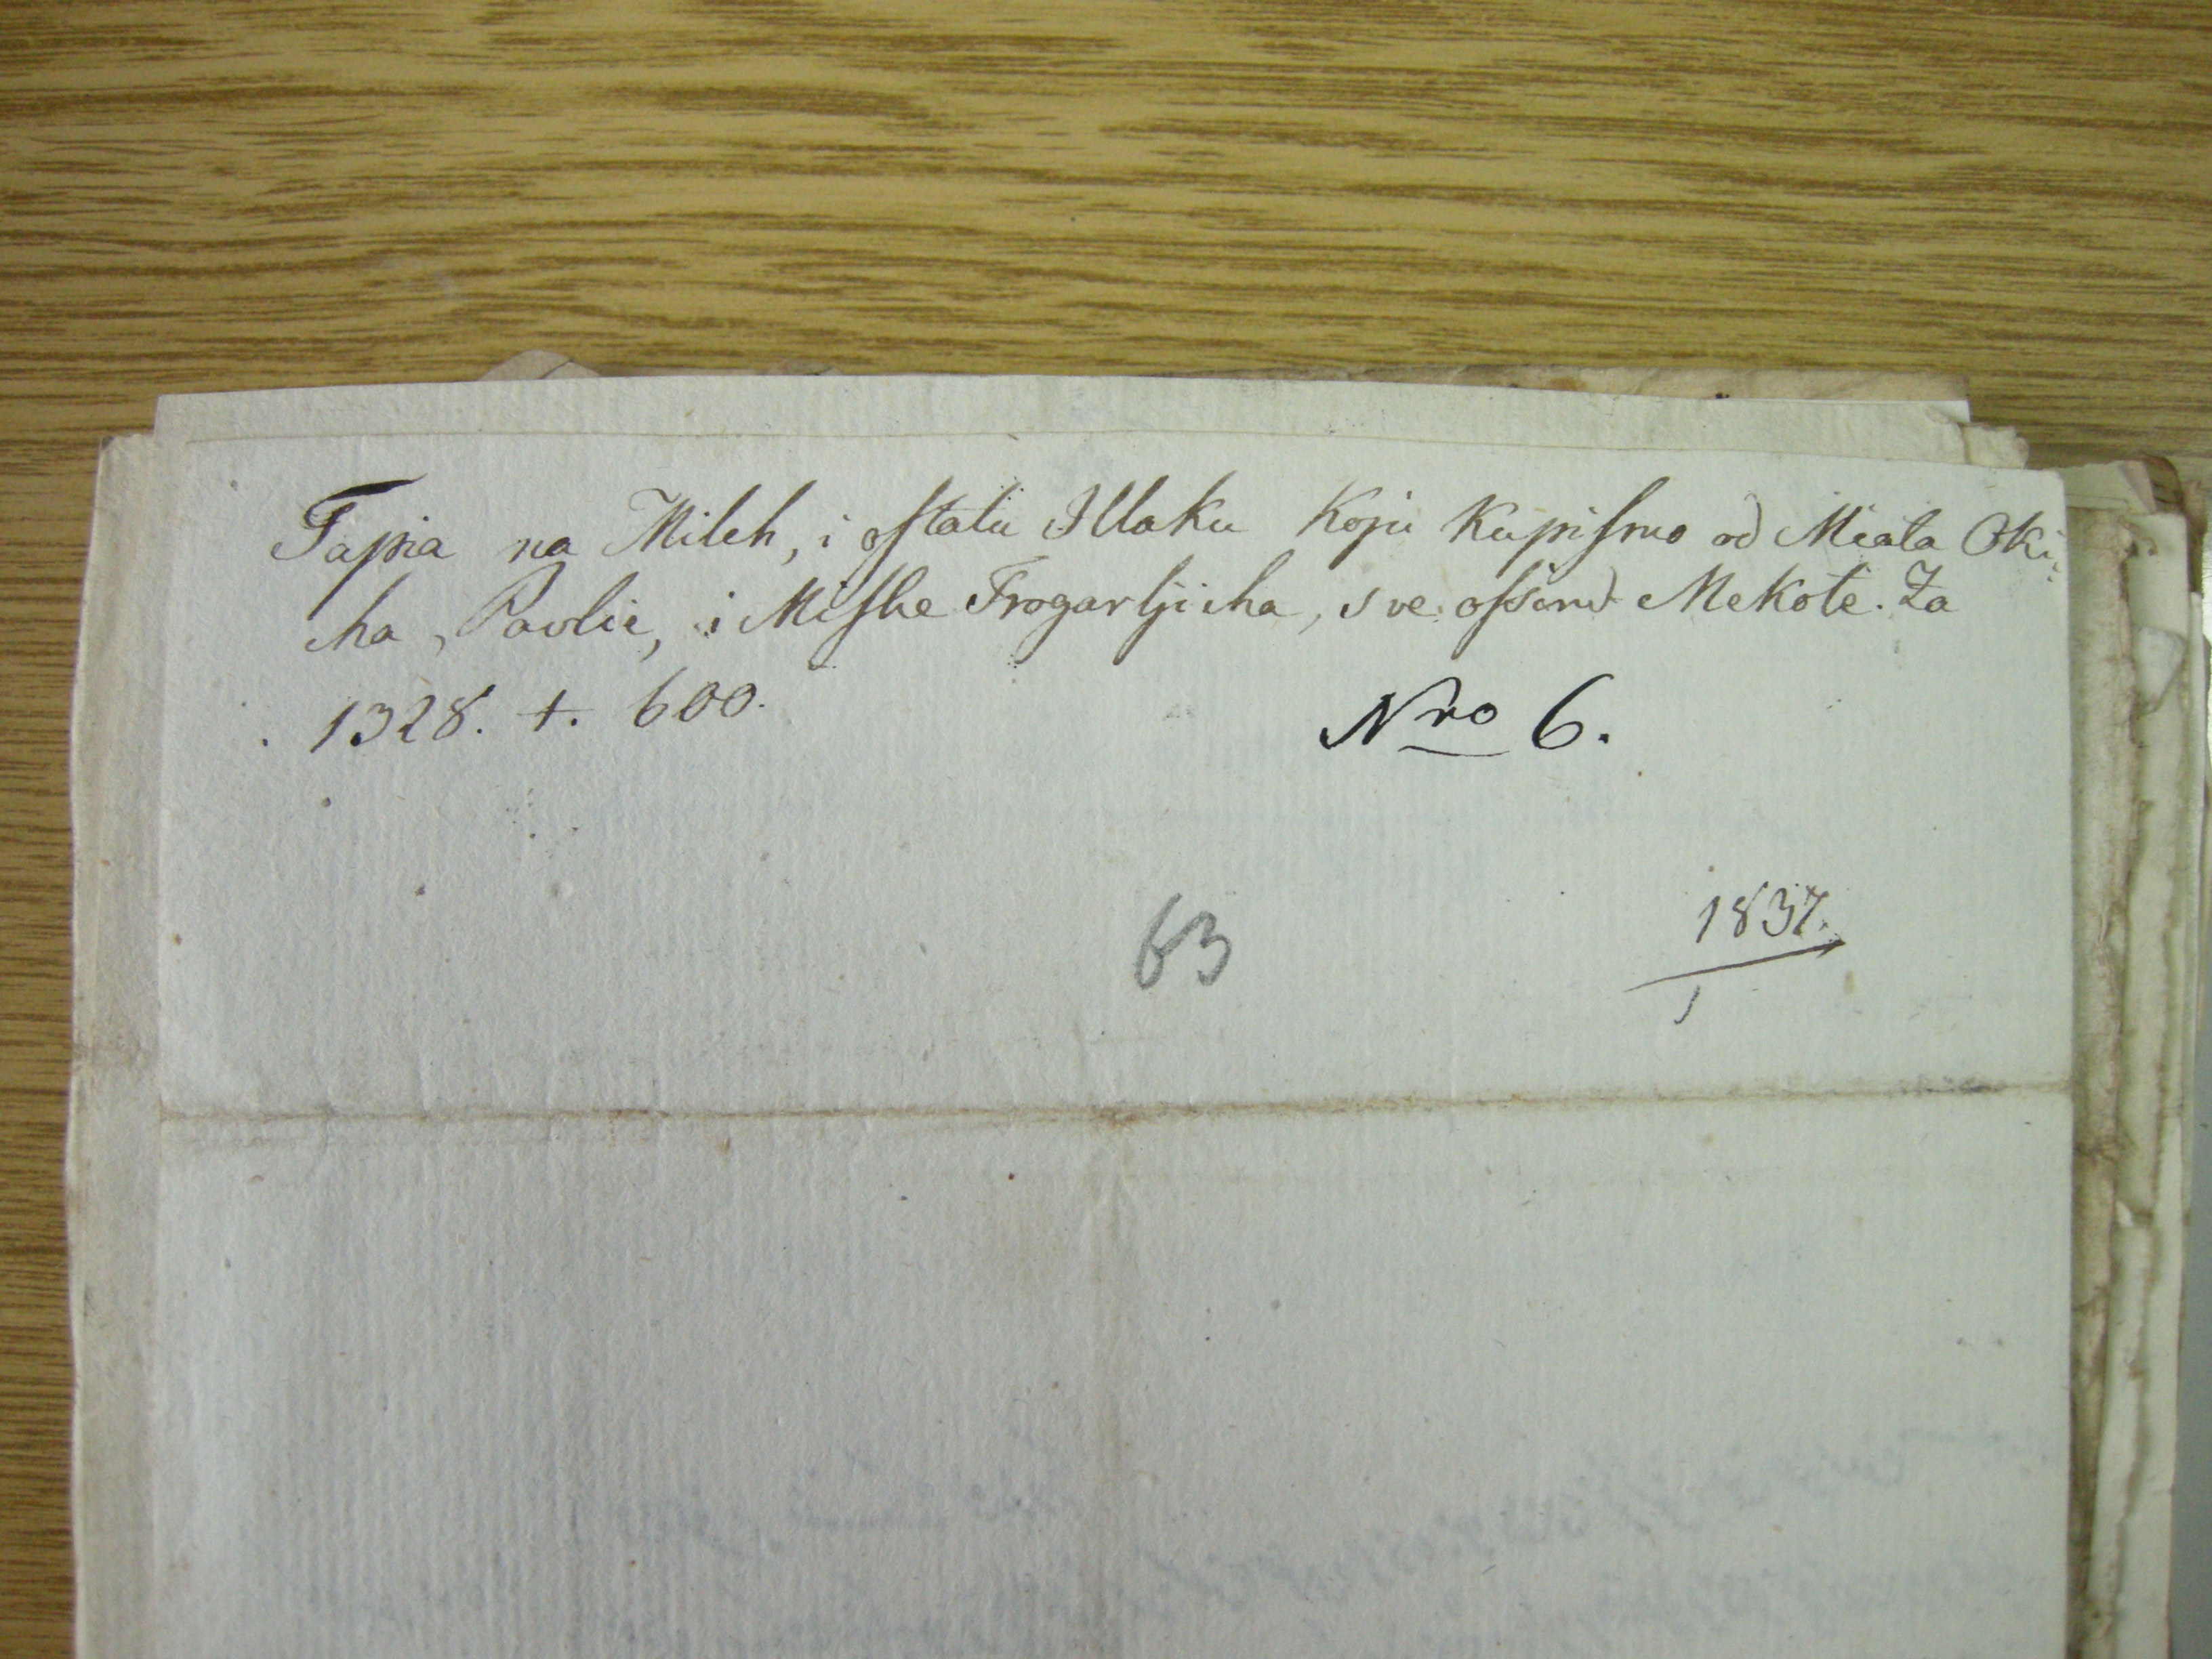 Tapia na Mileh, i ostalu Illaku Koju Kupiſmo od Miata Oki-
cha, Pavlie, i Miſhe Trogarljicha, sve Mekote. Za
1328. +. 600.
Nro 6.
63
1837.